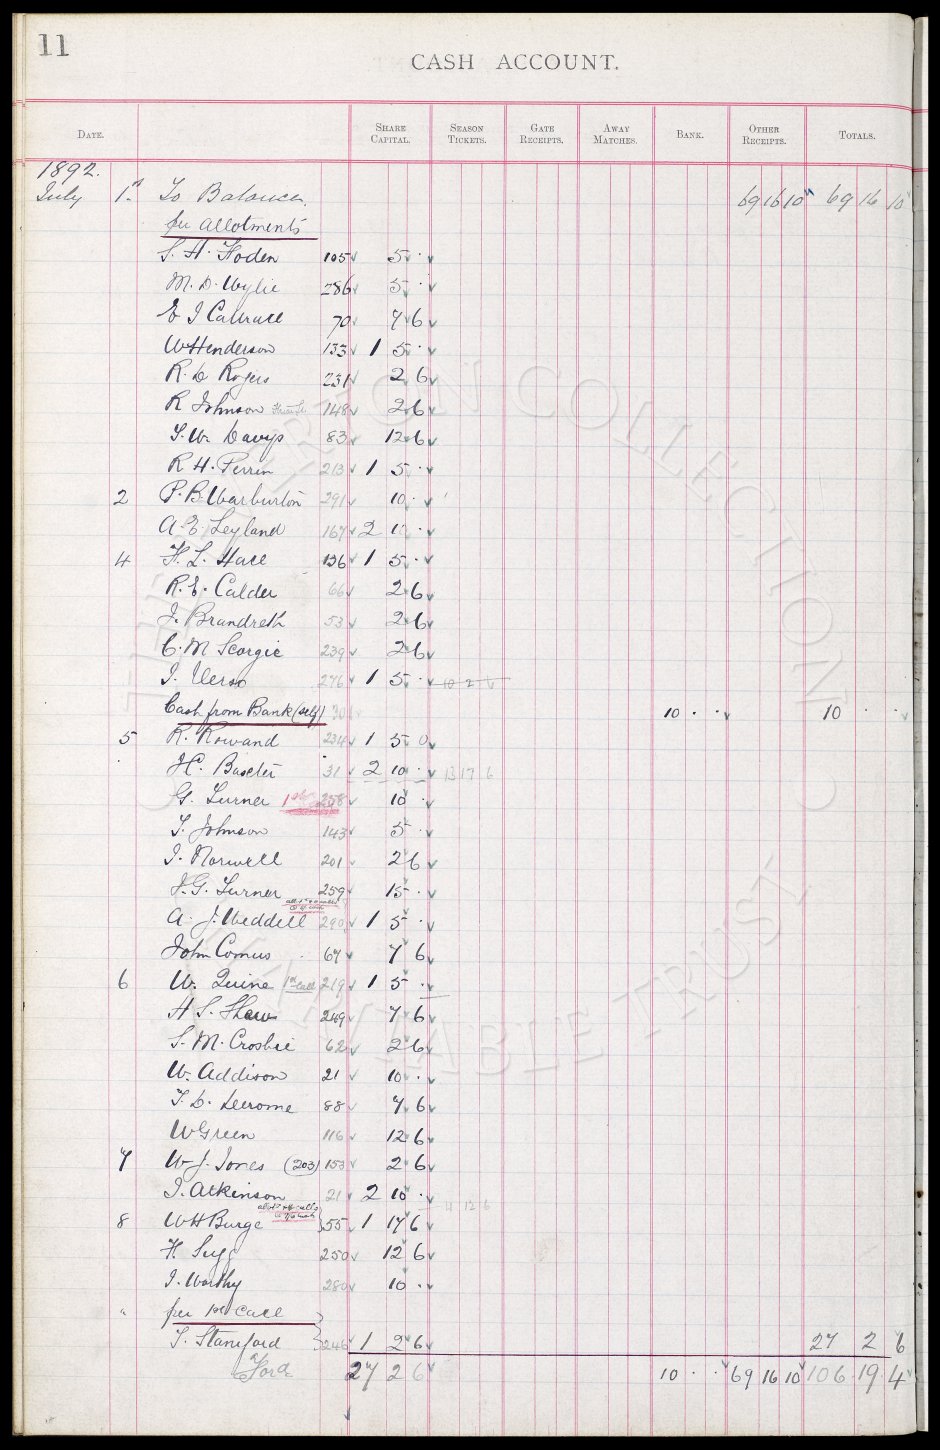 11
CASH ACCOUNT.
DATE. SHARE CAPITAL. SEASON TICKETS. GATE RECEIPTS. AWAY MATCHES. BANK. OTHER RECEIPTS. TOTALS.
1892.
July 1st To Balance. 69 16 10 69 16 10
per allotments
S. H. Foden 105 5 .
M. D. Wylie 286 5 .
E J Cattrall 70 7 6
W Henderson 133 1 5 .
R. D Rogers 231 2 6
R Johnson 148 2 6
T. W. Davys 83 12 6
R H. Perrin 213 1 5 .
2 P. B. Warburton 291 10 .
A. E. Leyland 167 2 10 .
4 H. L. Hall 136 1 5 .
R. E. Calder 66 2 6
J. Brandreth 53 2 6
C. M Scorgie 239 2 6
276 1 5 . 10 2 6
Cash from Bank (self) 301 10 . . 10 . .
5 R. Rowand 234 1 5 0
H. Baxter 31 2 10 . 13 17 6
G. Turner 1st 258 10 .
T. Johnson 143 5 .
J. Norwell 201 2 6
J. G. Turner 259 15 .
A. J. Weddell 290 1 5 .
John Comus 67 7 6
6 W. Quine 1st Call 219 1 5 .
H S. Shaw 249 7 6
S. M. Crosbie 62 2 6
W. Addison 21 10 .
T. D. Derome 88 7 6
W Green 116 12 6
7 W J. Jones (203) 153 2 6
J. Atkinson 21 2 10 . 11 12 6
8 W H Burge 55 1 17 6
H. Sugg 250 12 6
J. Worthy 280 10 .
" per 1st Call
T. Staniford 246 1 2 6 27 2 6
Ford 27 2 6 10 . . 69 16 10 106 19 4
THE EVERTON COLLECTION
CHARITABLE TRUST